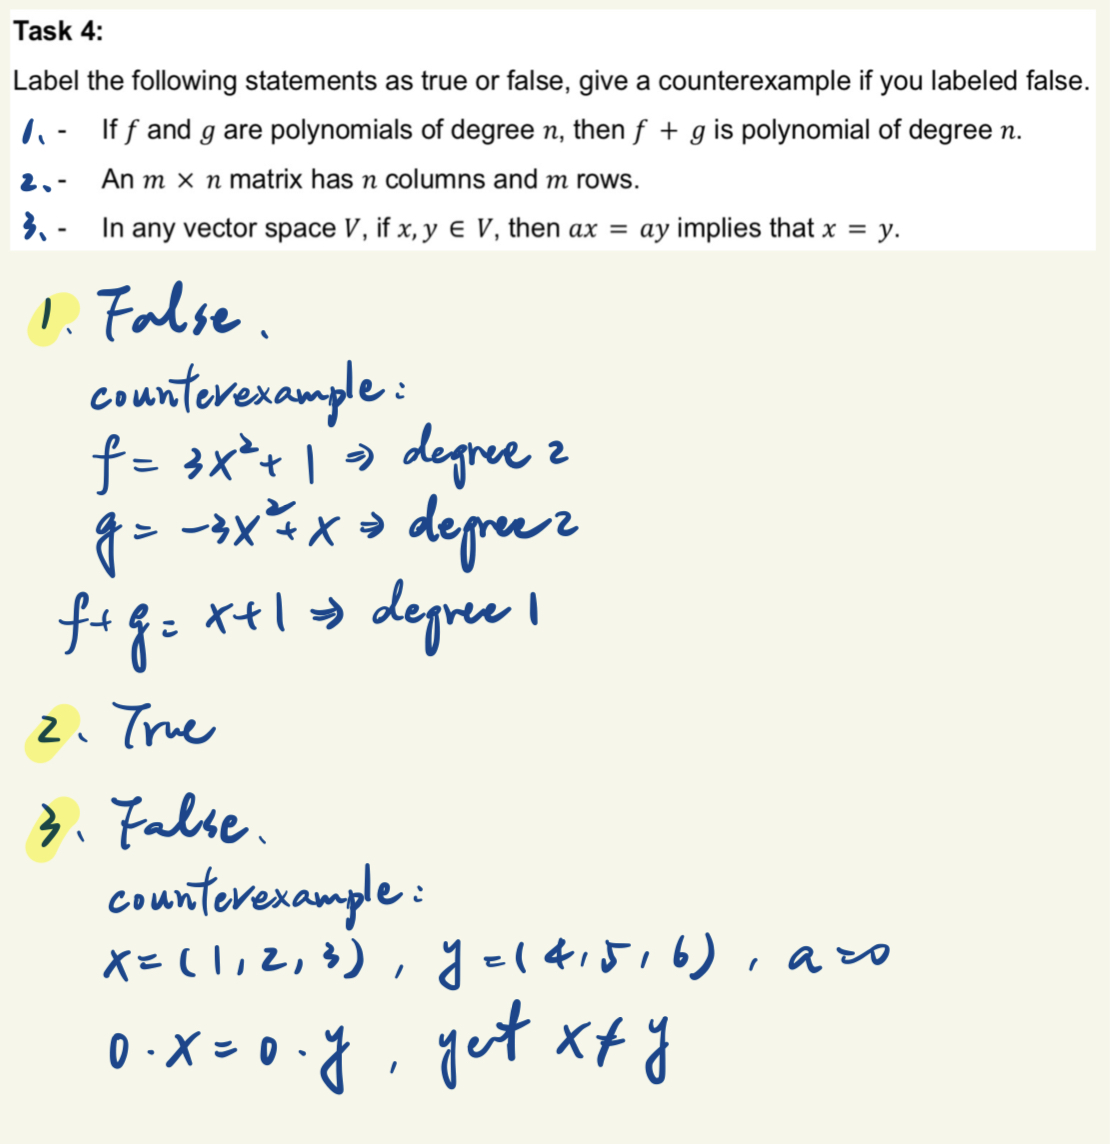 Task 4:
Label the following statements as true or false, give a counterexample if you labeled false.
1、 - If f and g are polynomials of degree n, then f + g is polynomial of degree n.
2、 - An m × n matrix has n columns and m rows.
3、 - In any vector space V, if x, y ∈ V, then ax = ay implies that x = y.
1、 False.
counterexample:
f = 3x² + 1 ⇒ degree 2
g = -3x² + x ⇒ degree 2
f + g = x + 1 ⇒ degree 1
2、 True
3、 False.
counterexample:
x = (1, 2, 3), y = (4, 5, 6), a = 0
0 · x = 0 · y, yet x ≠ y